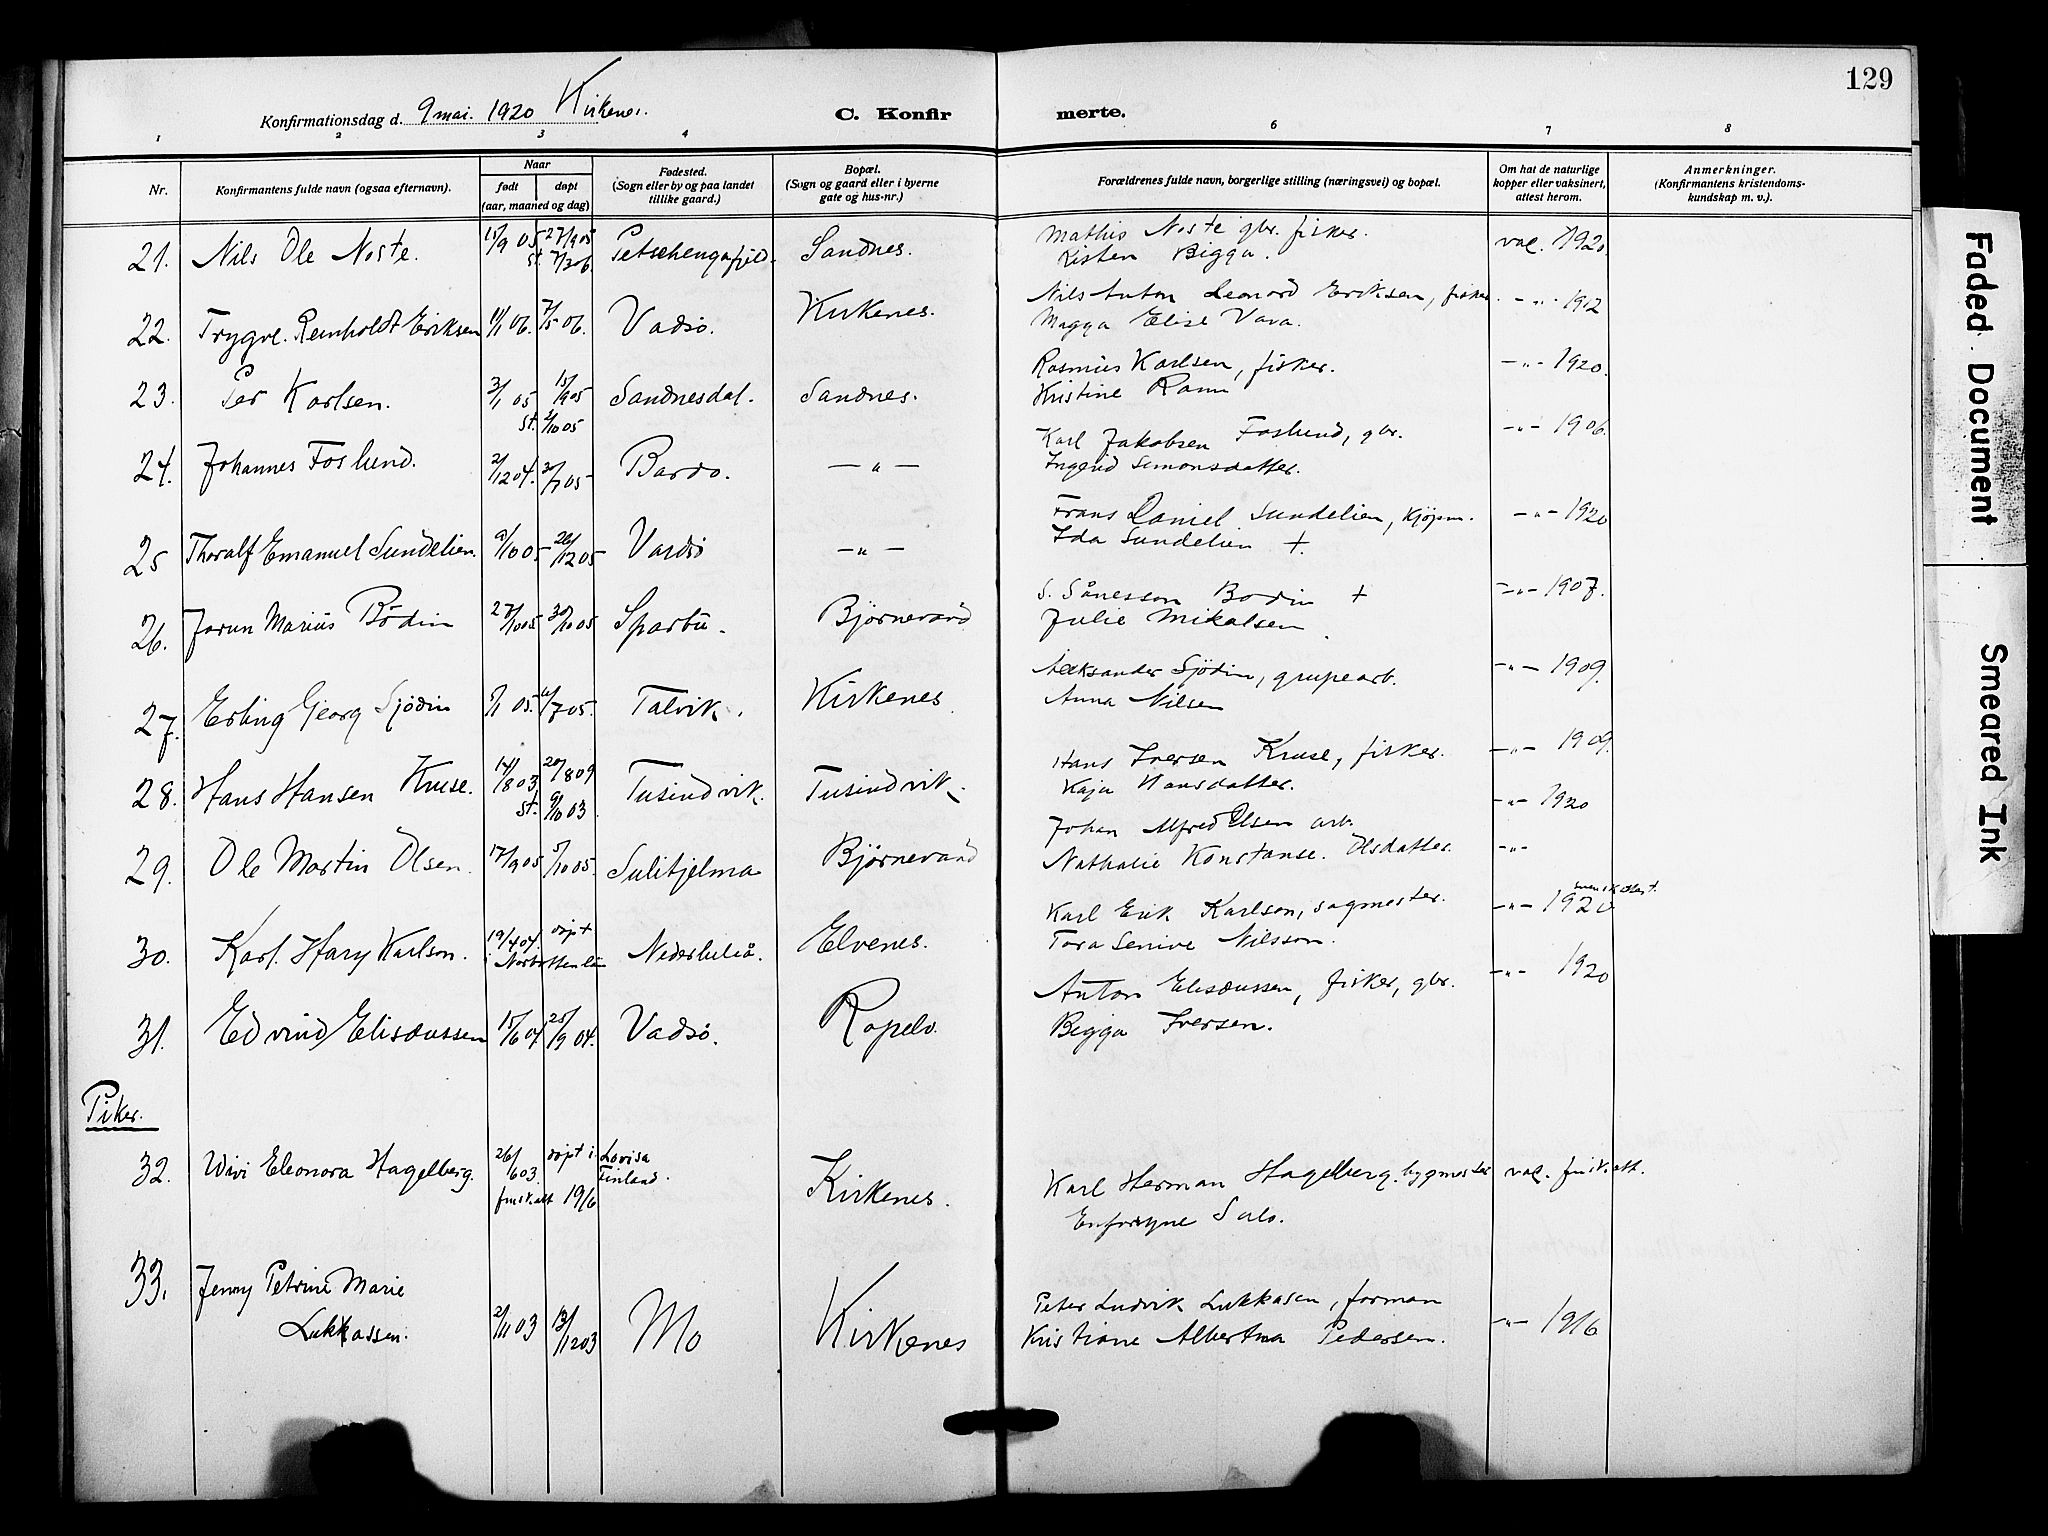 129
Konfirmationsdag d. 9 mai. 1920 Kirkenes.
C. Konfirmerte.
1 2 3 4 6 7 8
Nr. Konfirmantens fulde navn (ogsaa efternavn). Naar født døpt (aar, maaned og dag) Fødested. (Sogn eller by og paa landet tillike gaard.) Bopæl. (Sogn og gaard eller i byerne gate og hus-nr.) Forældrenes fulde navn, borgerlige stilling (næringsvei) og bopæl. Om hat de naturlige kopper eller vaksinert, attest herom. Anmerkninger. (Konfirmantens kristendoms-kundskap m. v.).
21. Nils Ole Noste. 15/9 05 27/9 05 st. 7/3 06. Petschengafjeld. Sandnes. Mathis Noste gbr. fisker. vac. 1920.
Kisten Bigga.
22. Trygve. Reinholdt Eriksen 11/1 06. 7/5 06. Vadsø. Kirkenes. Nils Anton Leonard Eriksen, fisker. -"- 1912
Magga Elise Vara.
23. Per Karlsen. 3/1 05 15/9 05 st. 2/10 05 Sandnesdal. Sandnes. Rasmus Karlsen, fisker. -"- 1920.
Kristine Rann
24. Johannes Foslund. 2/12 04. 30/7 05 Bardo. -"- Karl Jakobsen Foslund, gbr. -"- 1906.
Ingerid Simonsdatter.
25 Thoralf Emanuel Sundelien. 9/10 05 26/12 05 Vardø -"- Frans Daniel Sundelien, kjøpm. -"- 1920
Ida Sundelien +.
26. Marius Bodin 27/10 05 30/10 05 Sparbu. Bjørnevand S. Sånesson Bodin + -"- 1907.
Julie Mikalsen.
27. Erling Georg Sjødin 5/1 05. 6/7 05. Talvik. Kirkenes. Aleksander Sjödin, grupearb. -"- 1909.
Anna Nilsen
28. Hans Hansen Kruse. 14/8 03. 20/8 09 st. 9/10 03 Tusindvik. Tusindvik. Hans Iversen Kruse, fisker. -"- 1909.
Kaja Hansdatter. -"- 1920
29. Ole Martin Olsen. 17/9 05 5/10 05. Sulitjelma Bjørnevand Johan Alfred Olsen arb.
Nathalie Konstanse. Olsdatter. -"-
30. Karl. Hary Karlson. 19/4 04. døpt i Norbottenlän Nederluleå. Elvenes. Karl Erik Karlson, sagmester. -"- 1920 svensk attest.
Tora Senive Nilsson.
31. Edvind Elisæussen 15/6 04 25/9 04. Vadsø. Ropelv. Anton Elisæussen, fisker, gbr. -"- 1920
Bigga Iversen.
Piker.
32. Wivi Eleonora Hagelberg. 26/6 03. døpt i Lovisa Finland. finsk att 19/6 Kirkenes. Karl Herman Hagelberg, bygmester vac. finsk att.
Salo.
33. Jenny Petrine Marie
Lukkassen. 2/11 03 13/12 03 Mo Kirkenes Peter Ludvik Lukkasen, forman -"- 1916
Kristiane Albertina Pedersen.
Faded Document
Smeared Ink